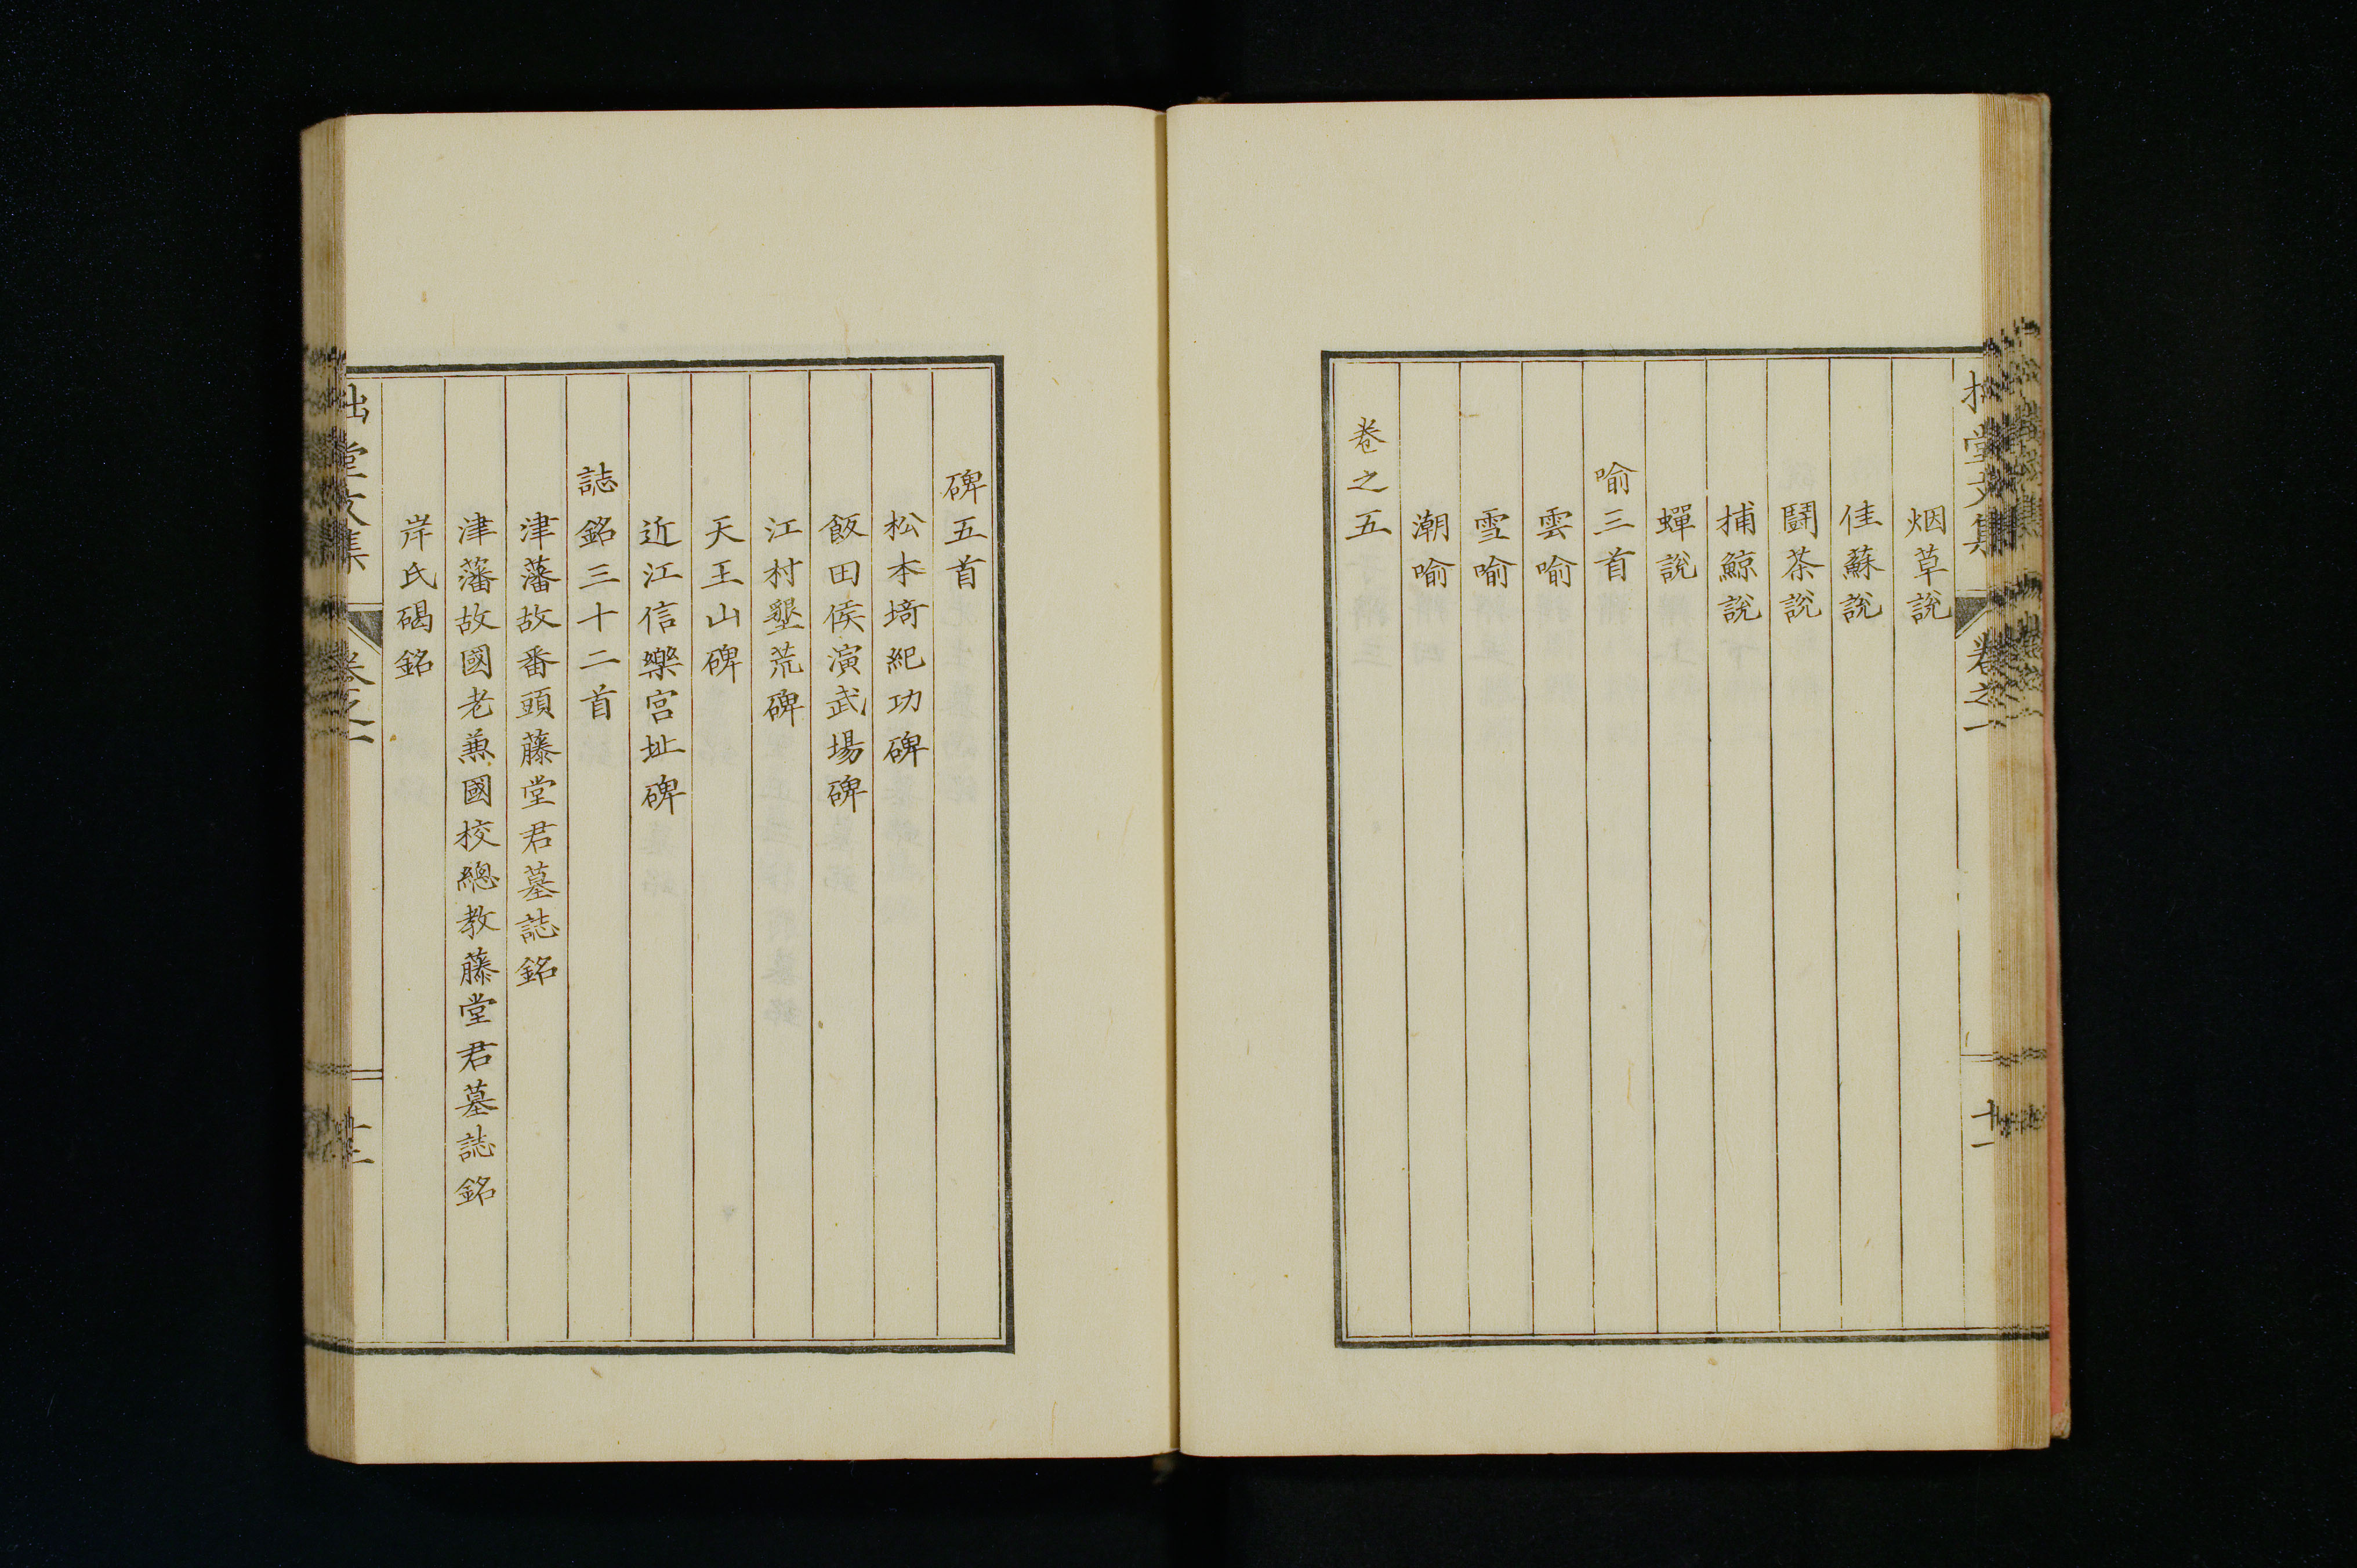 烟草說
佳蘇說
鬪茶說
捕鯨說
蟬說
喻三首
雲喻
雪喻
潮喻
卷之五
碑五首
松本埼紀功碑
飯田侯演武場碑
江村墾荒碑
天王山碑
近江信樂宮址碑
誌銘三十二首
津藩故番頭藤堂君墓誌銘
津藩故國老兼國校總教藤堂君墓誌銘
岸氏碣銘
堂文集
卷之一
十一